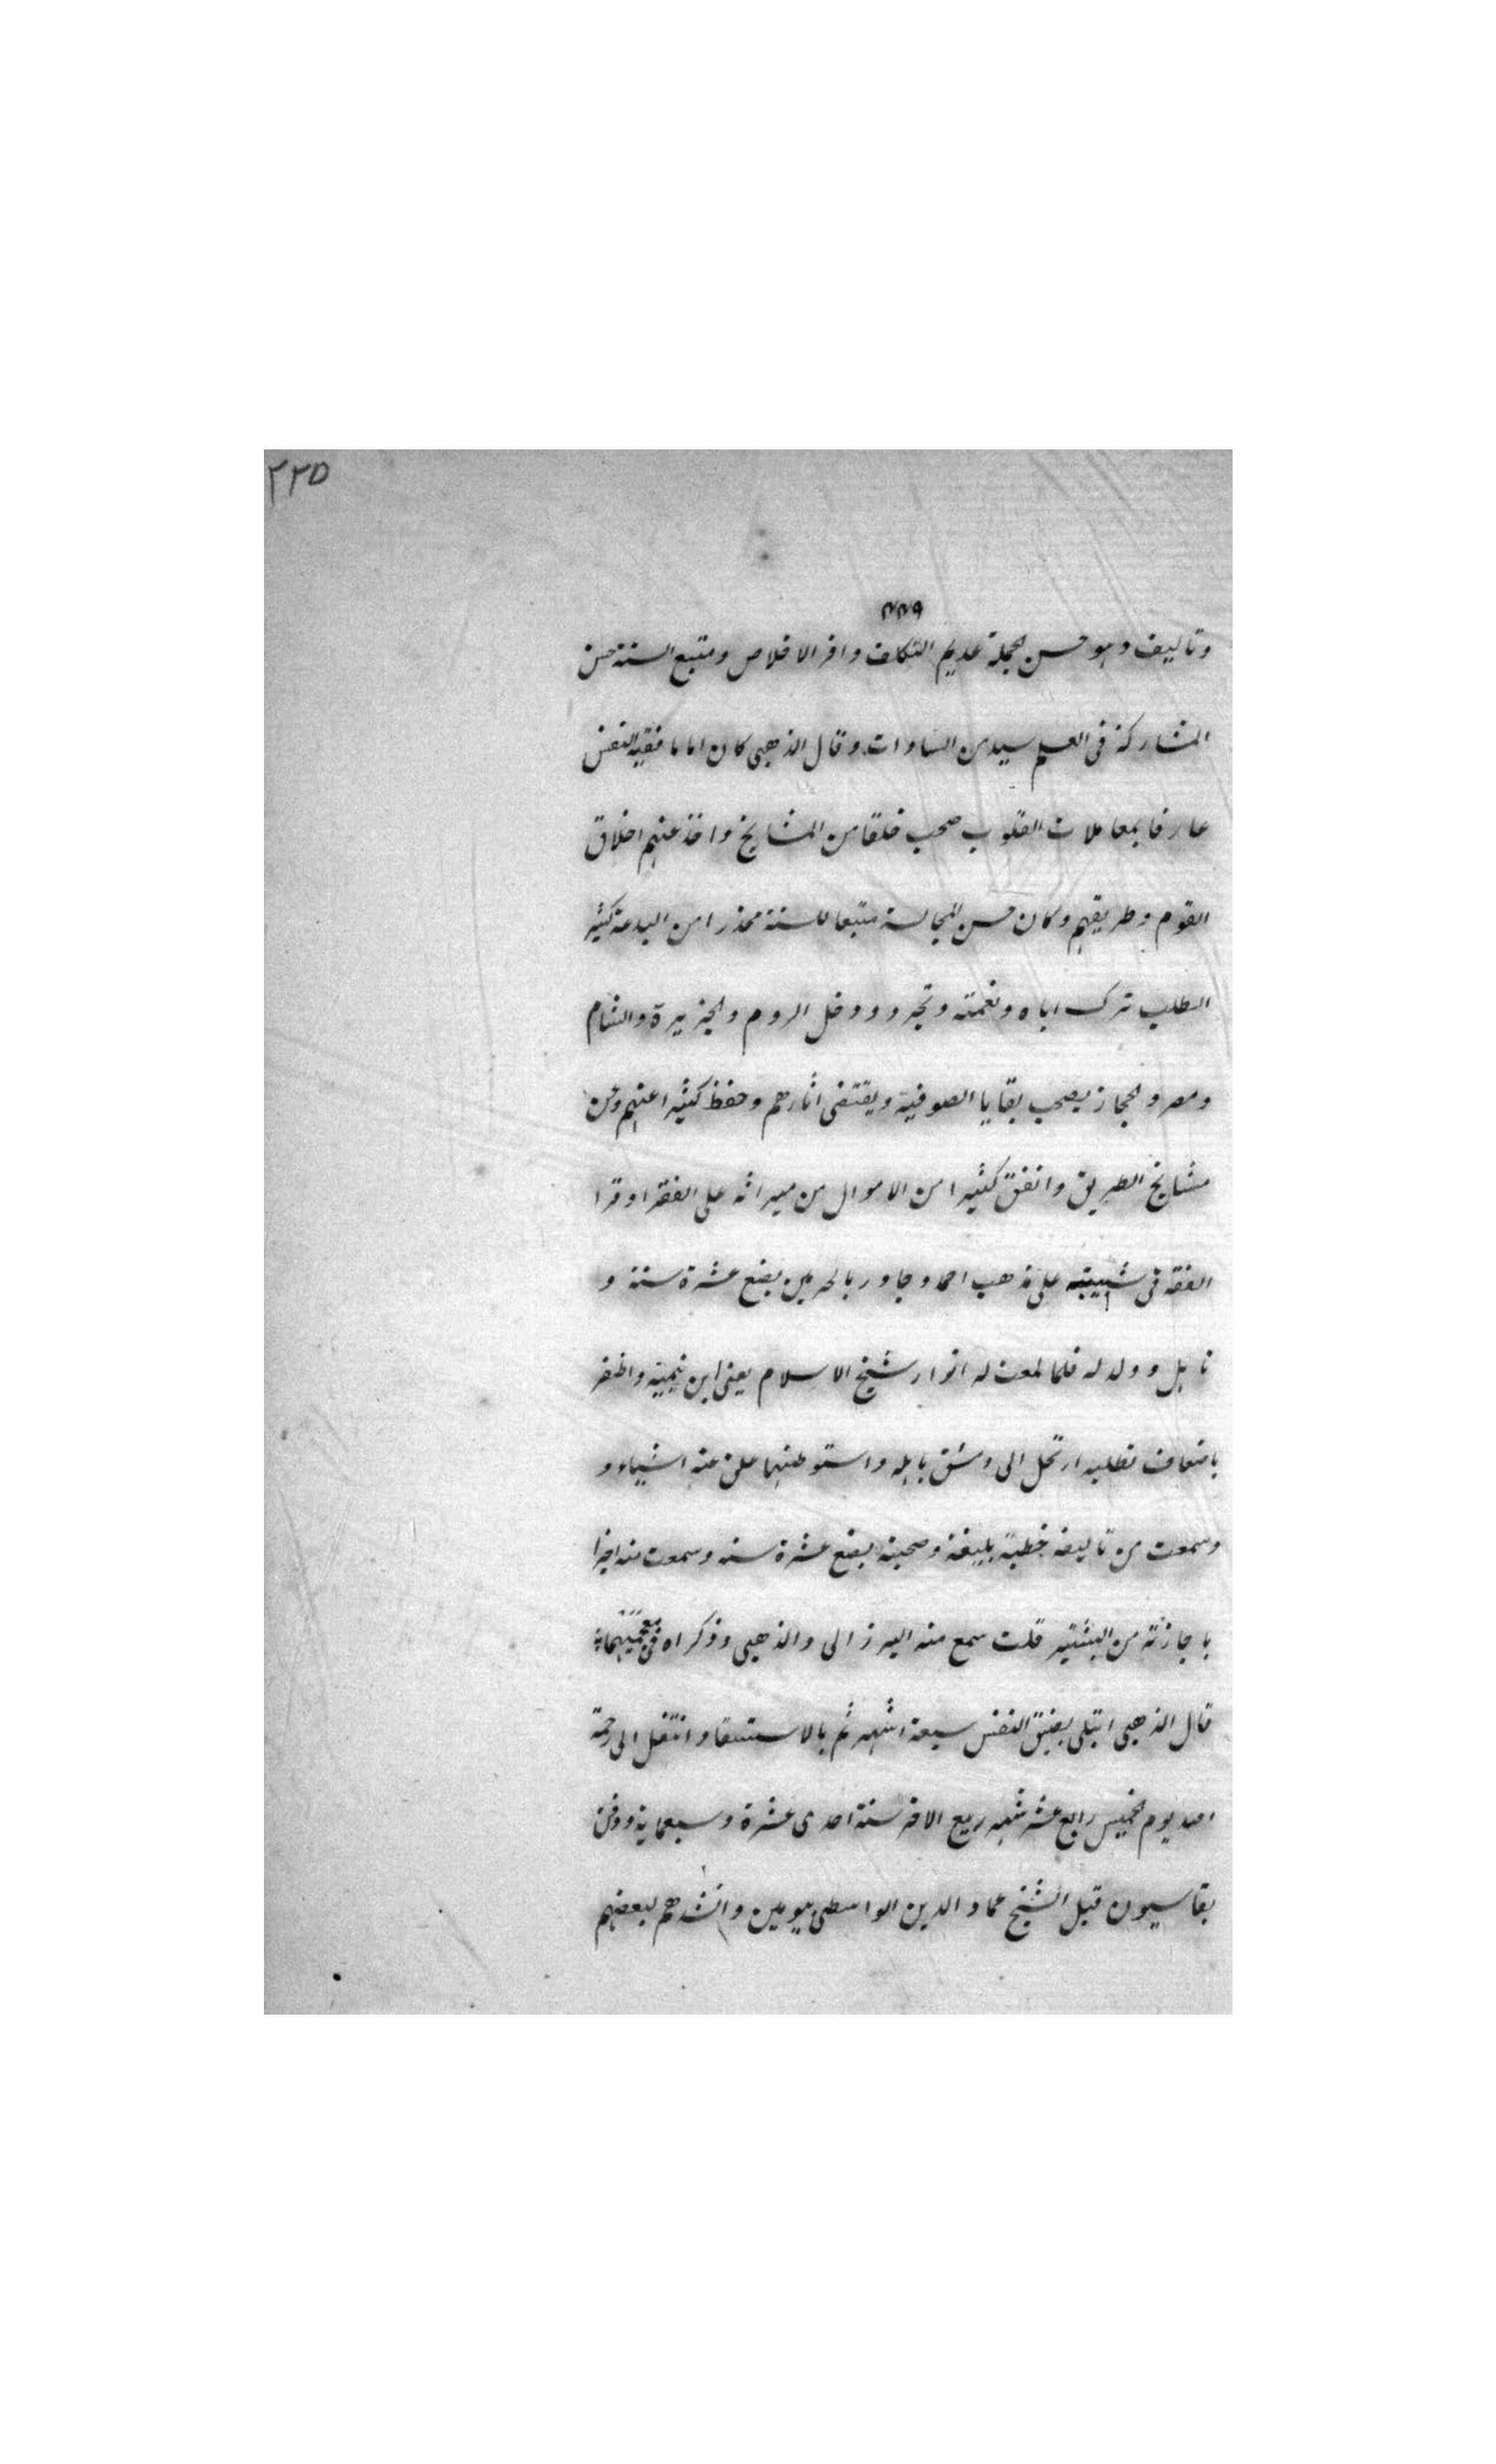 ٢٢٥
٨٨٩
وتاليف وهو حسن الجملة عديم التكلف وافر الاخلاص ومتبع السنة حسن
المشاركة فى العلم سيد من السادات وقال الذهبى كان اماما فقيه النفس
عارفا بمعاملات القلوب صحب خلقا من المشايخ واخذ عنهم اخلاق
القوم وطريقهم وكان حسن المجالسة متبعا للسنة محذرا من البدعة كثير
الطلب ترك اباه ونعمته وتجرد ودخل الروم والجزيرة والشام
ومصر والحجاز يصحب بقايا الصوفية ويقتفى اثارهم وحفظ كثيرا عنهم وعن
مشايخ الطريق وانفق كثيرا من الاموال من ميراثه على الفقرا وقرا
الفقه فى شبيبته على مذهب احمد وجاور بالحرمين بضع عشرة سنة و
تاهل وولد له فلما لمعت له انوار شيخ الاسلام يعنى ابن تيمية واظفر
باضعاف تطلبه ارتحل الى دمشق باهله واستوطنها علق عنه اشياء و
وسمعت من تاليفه خطبة بليغة وصحبته بضع عشرة سنة وسمعت منه اجزا
باجازته من البشتير قلت سمع منه البرزالى والذهبى وذكراه فى معجميهما
قال الذهبى ابتلى بضيق النفس سبعة اشهر ثم بالاستسقا وانتقل الى رحمة
الله يوم الخميس رابع عشر شهر ربيع الاخر سنة احدى عشرة وسبعماية ودفن
بقاسيون قبل الشيخ عماد الدين الواسطى بيومين وانشدهم لبعضهم